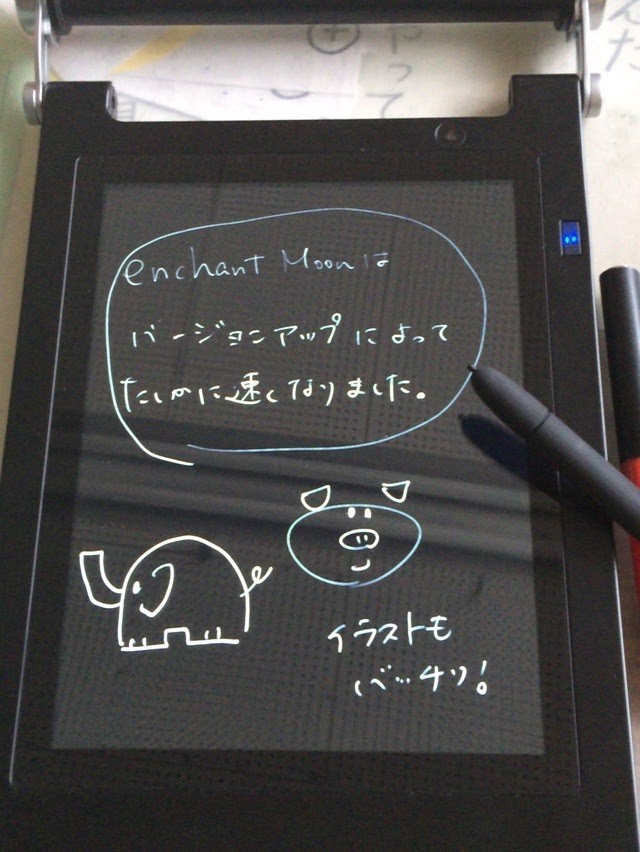 enchant Moonは
バージョンアップによって
たしかに速くなりました。
イラストも
バッチリ!